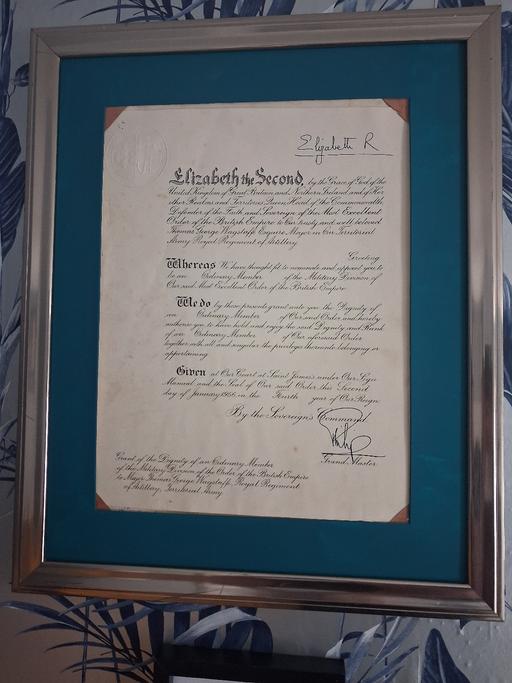 Elizabeth R
Elizabeth the Second, by the Grace of God of the
United Kingdom of Great Britain and Northern Ireland and of Her
other Realms and Territories Queen, Head of the Commonwealth,
Defender of the Faith and Sovereign of the Most Excellent
Order of the British Empire to Our trusty and well beloved
Thomas George Wagstaff Esquire Major in Our Territorial
Army Royal Regiment of Artillery
Greeting
Whereas We have thought fit to nominate and appoint you to
be an Ordinary Member of the Military Division of
Our said Most Excellent Order of the British Empire
We do by these presents grant unto you the Dignity of
an Ordinary Member of Our said Order and hereby
authorise you to have hold and enjoy the said Dignity and Rank
of an Ordinary Member of Our aforesaid Order
together with all and singular the privileges thereunto belonging or
appertaining.
Given at Our Court at Saint James's under Our Sign
Manual and the Seal of Our said Order this Second
day of January 1956 in the Fourth year of Our Reign.
By the Sovereign's Command.
Grand Master
Grant of the Dignity of an Ordinary Member
of the Military Division of the Order of the British Empire
to Major Thomas George Wagstaff, Royal Regiment
of Artillery, Territorial Army